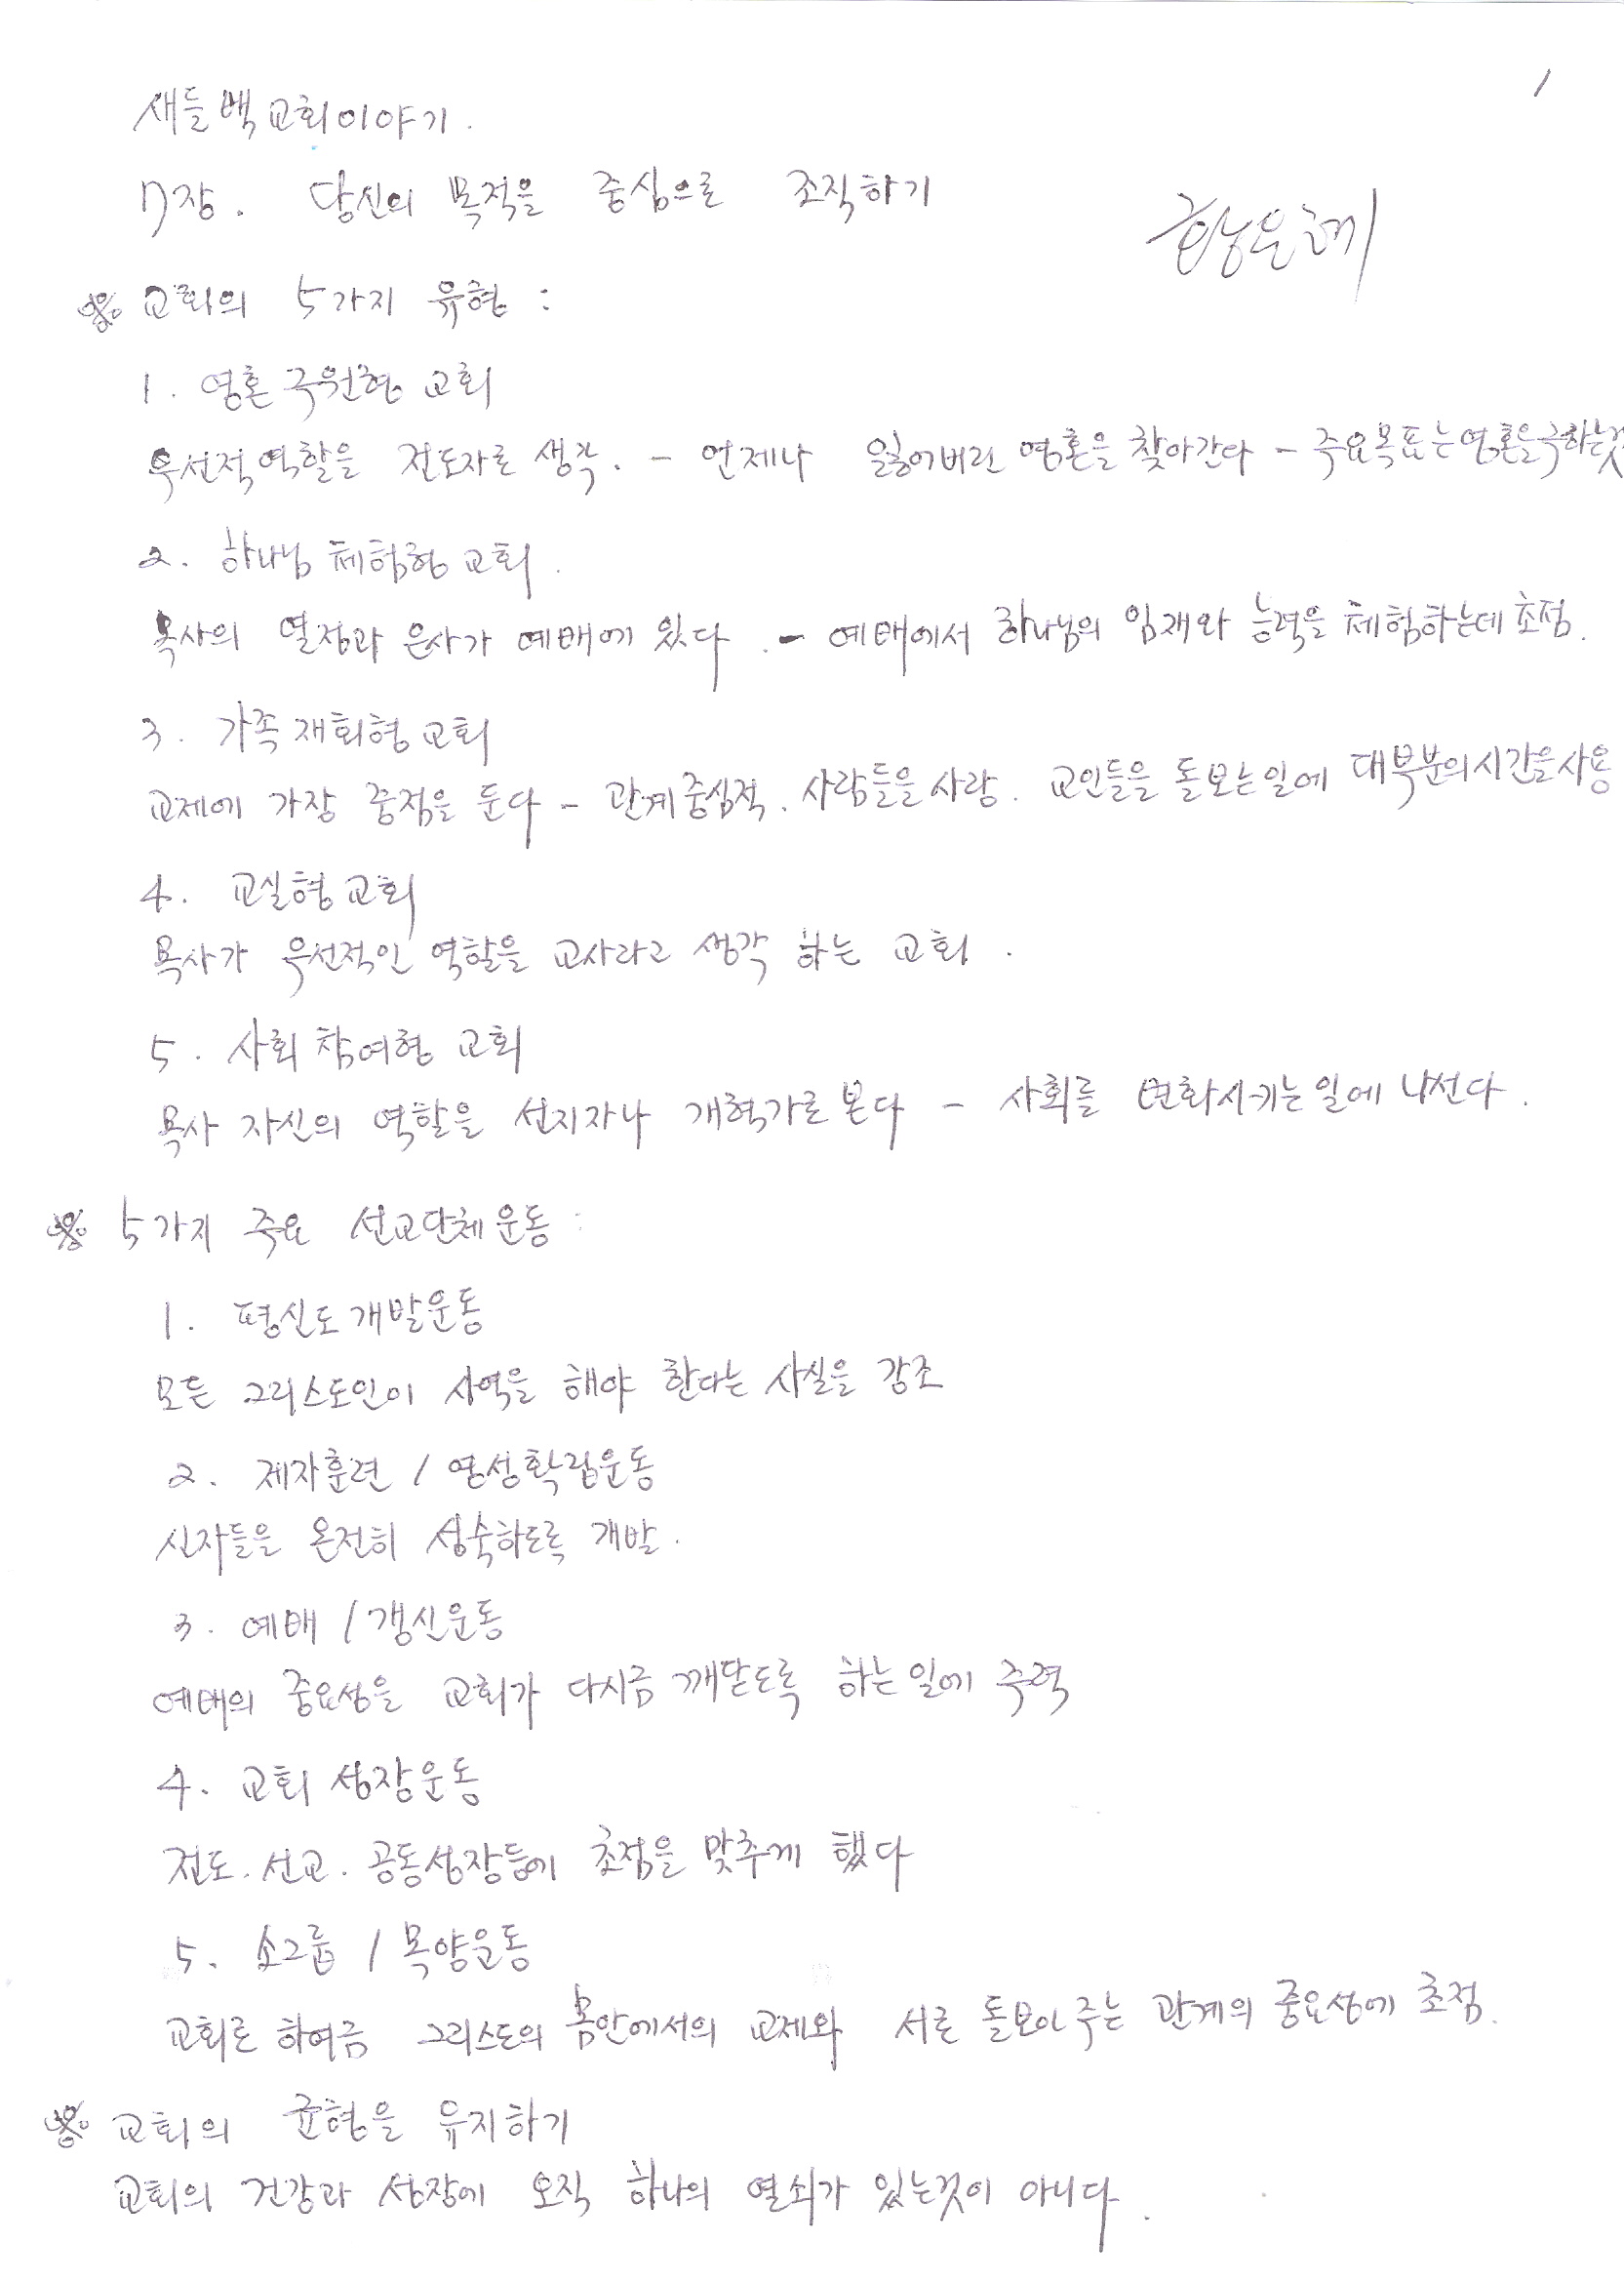 1
새들백교회이야기.
7장. 당신의 목적을 중심으로 조직하기
황은혜
※ 교회의 5가지 유형 :
1. 영혼구원형 교회
우선적역할을 전도자로 생각. - 언제나 잃어버린 영혼을 찾아간다 - 주요목표는영혼을구하는것
2. 하나님 체험형 교회.
목사의 열정과 은사가 예배에 있다. - 예배에서 하나님의 임재와 능력을 체험하는데 초점.
3. 가족재회형교회
교제에 가장 중점을 둔다 - 관계중심적. 사람들을사랑. 교인들을 돌보는일에 대부분의시간을사용
4. 교실형교회
목사가 우선적인 역할을 교사라고 생각 하는 교회.
5. 사회참여형 교회
목사 자신의 역할을 선지자나 개혁가로본다 - 사회를 변화시키는일에 나선다.
※ 5가지 주요 선교단체운동 :
1. 평신도개발운동
모든 그리스도인이 사역을 해야 한다는 사실을 강조
2. 제자훈련 / 영성확립운동
신자들을 온전히 성숙하도록 개발.
3. 예배 / 갱신운동
예배의 중요성을 교회가 다시금 깨닫도록 하는일에 주력
4. 교회 성장운동
전도. 선교. 공동성장등에 초점을 맞추게 했다
5. 소그룹 / 목양운동
교회로 하여금 그리스도의 몸안에서의 교제와 서로 돌보아주는 관계의 중요성에 초점.
※ 교회의 균형을 유지하기
교회의 건강과 성장에 오직 하나의 열쇠가 있는것이 아니다.